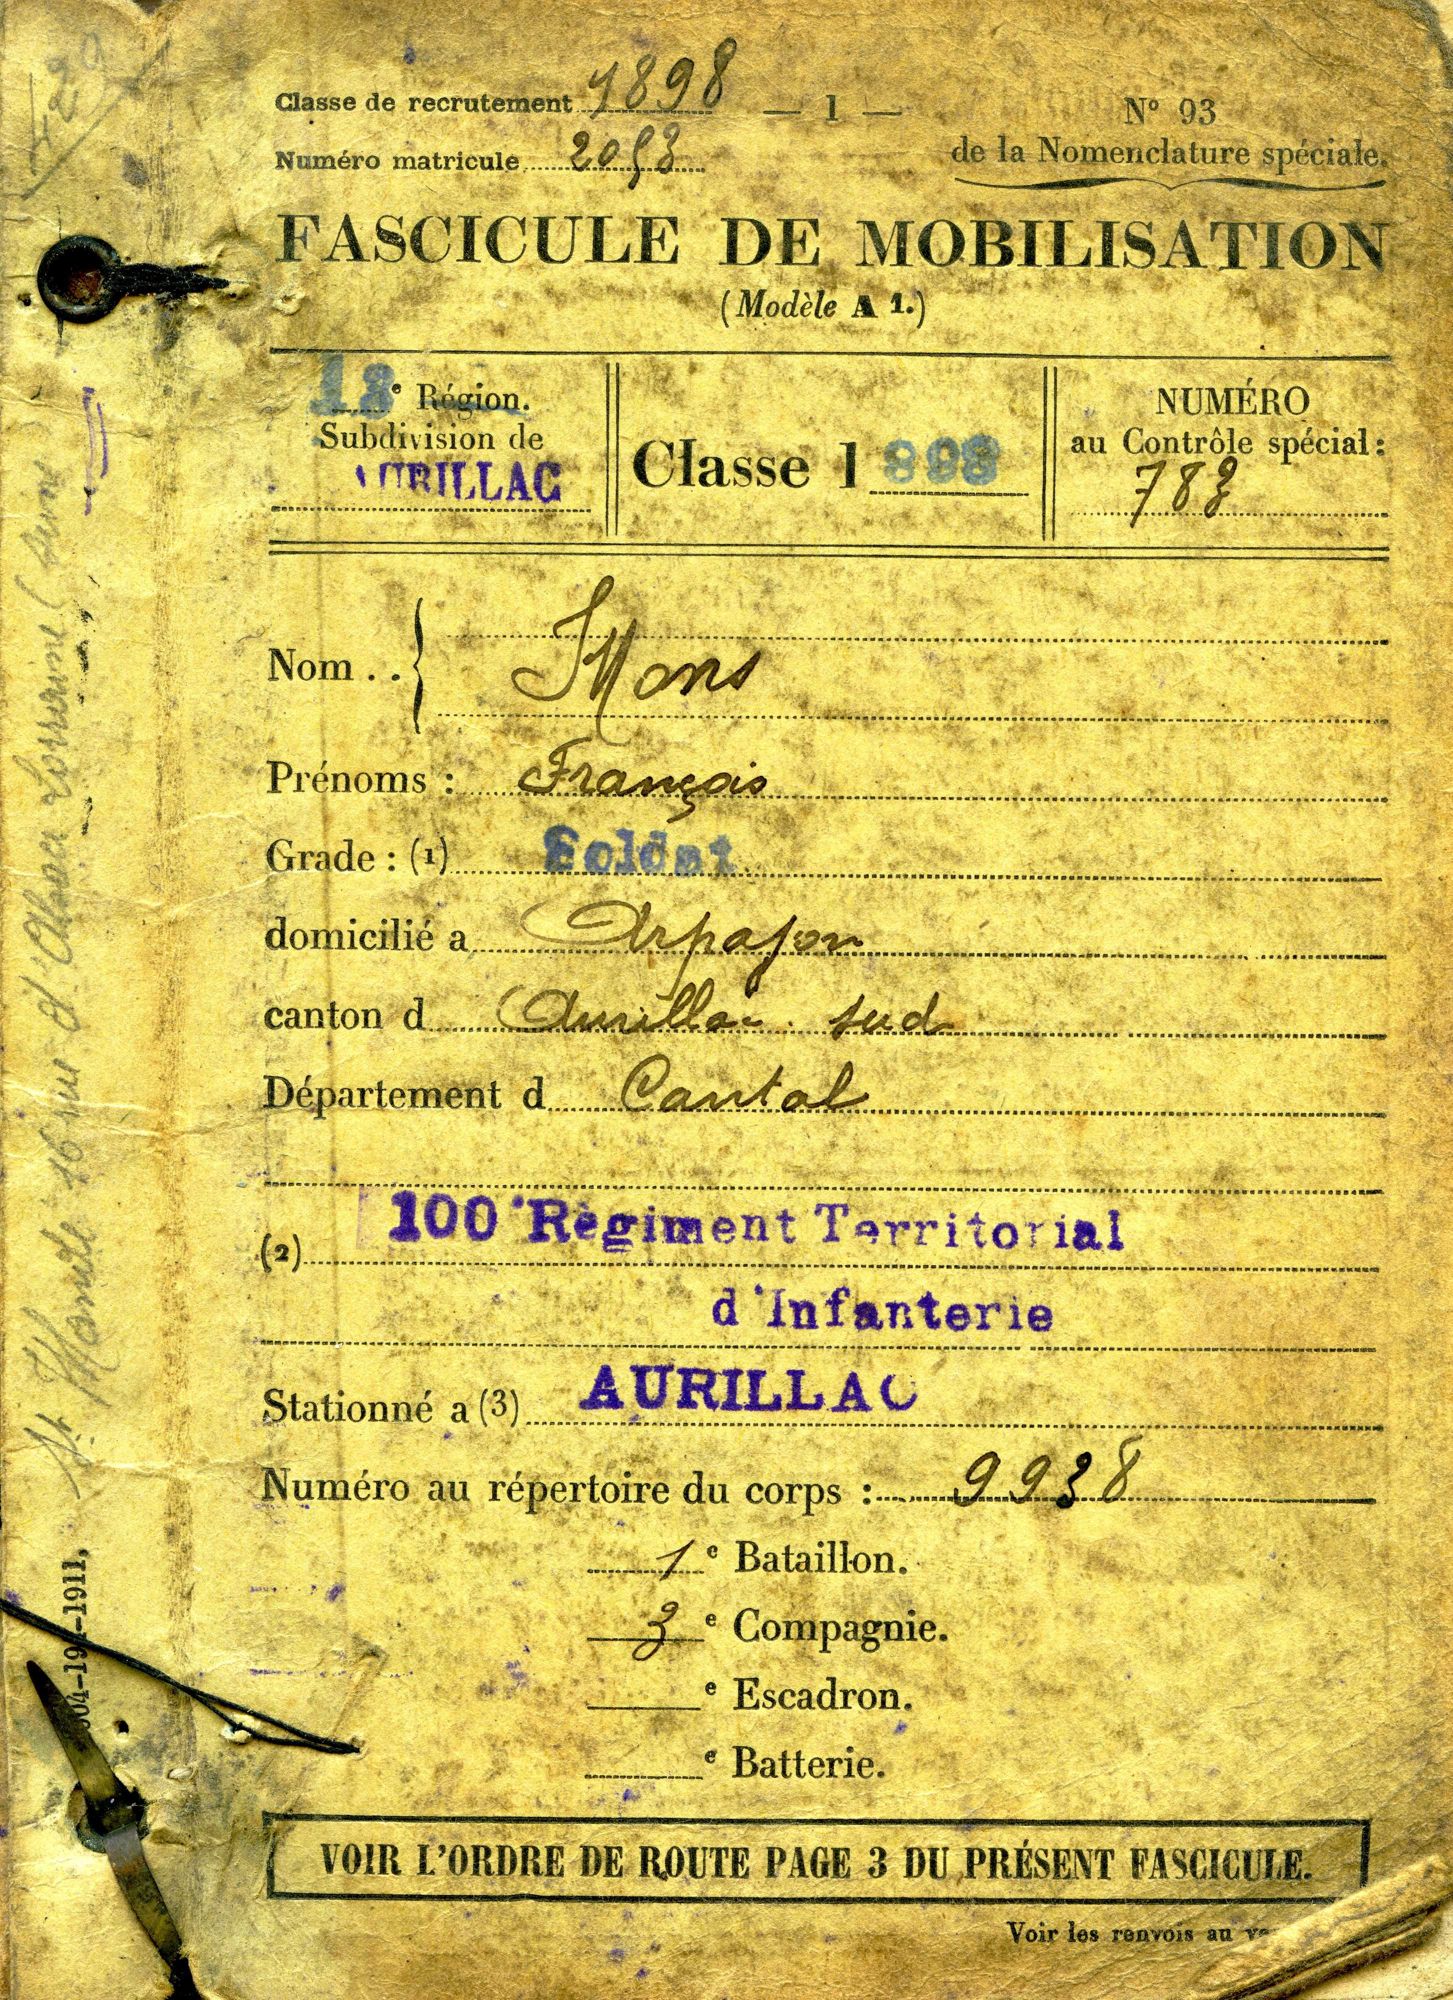 Classe de recrutement 1898
— 1 —
Nº 93
Numéro matricule 2053
de la Nomenclature spéciale.
FASCICULE DE MOBILISATION
(Modèle A 1.)
13e Région.
Subdivision de
AURILLAC
Classe 1898
NUMÉRO
au Contrôle spécial :
783
Nom . . Mons
Prénoms : François
Grade : (1) Soldat
domicilié a Arpajon
canton d Aurillac sud
Département d Cantal
(2) 100e Régiment Territorial
d'Infanterie
Stationné a (3) AURILLAC
Numéro au répertoire du corps : 9938
1e Bataillon.
3e Compagnie.
e Escadron.
e Batterie.
VOIR L'ORDRE DE ROUTE PAGE 3 DU PRÉSENT FASCICULE.
Voir les renvois au
St Mandé 16 rue d'Alsace Lorraine (Seine)
-1911.